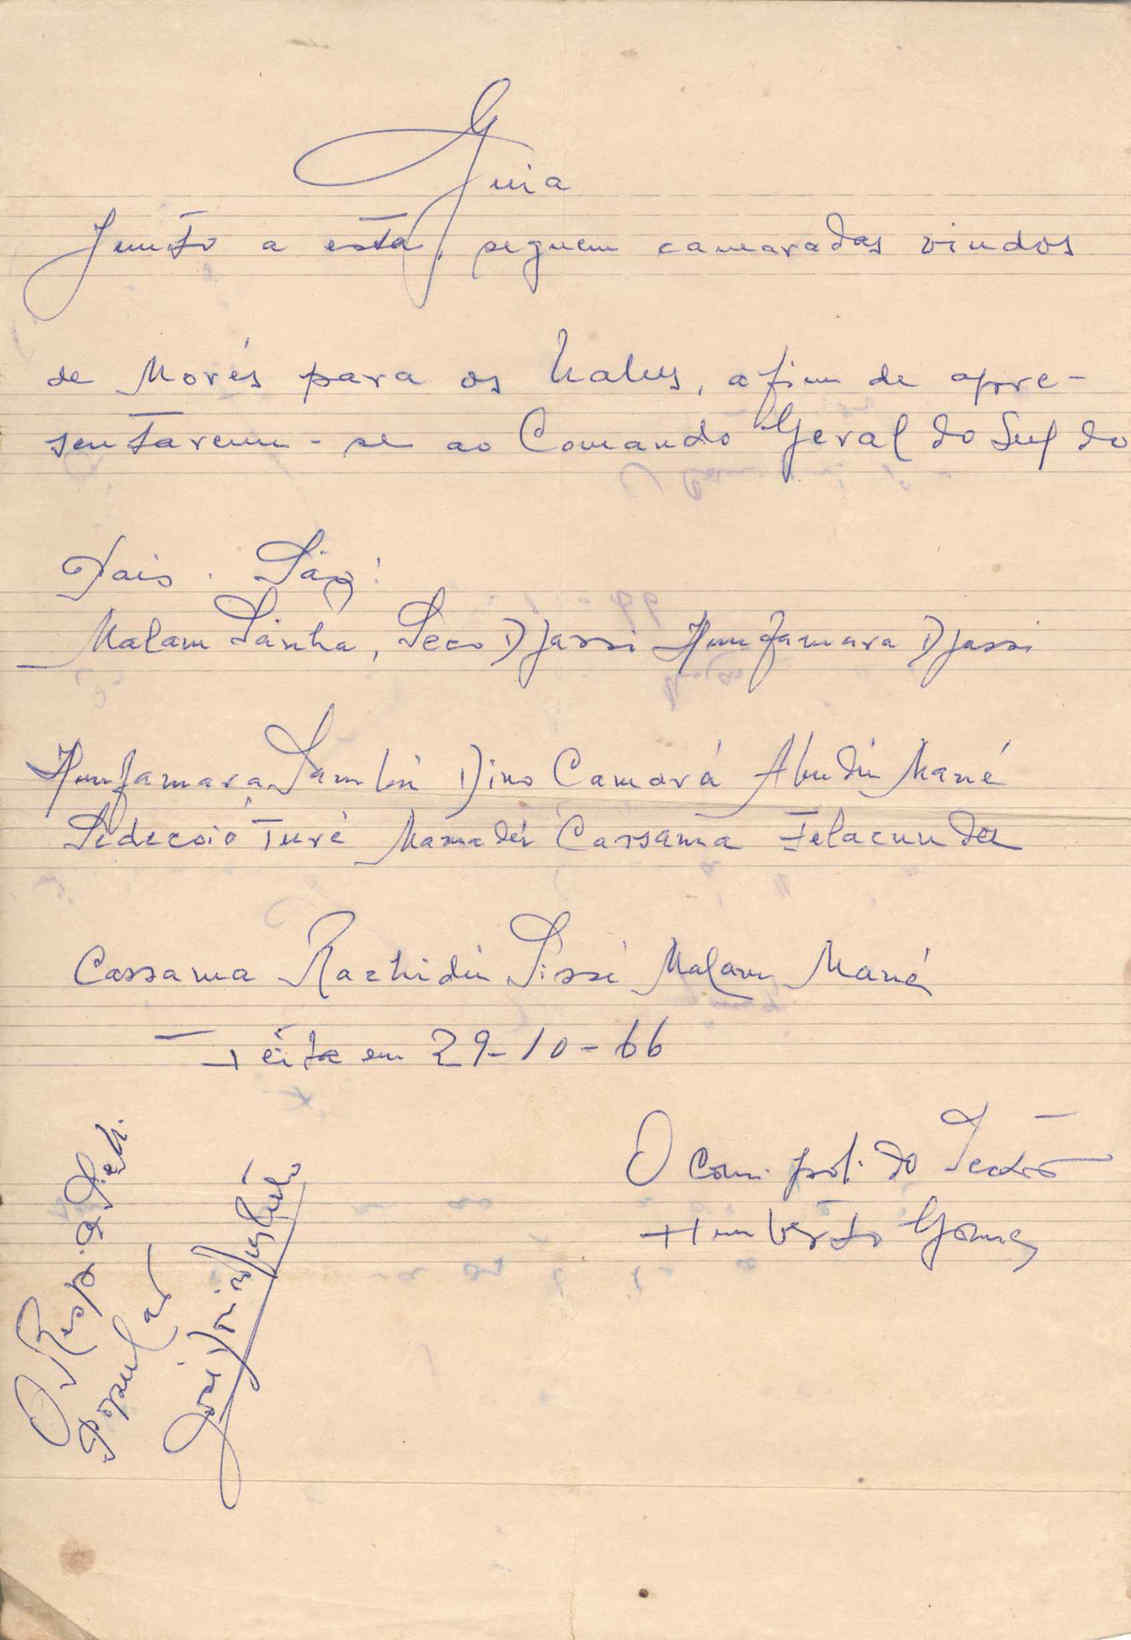 Guia
Junto a esta, seguem camaradas vindos
de Morés para os Nalus, afim de apre-
sentarem-se ao Comando Geral do Sul do
País. São:
Malam Sanha, Seco Djassi Hunfamara Djassi
Hunfamara Sambú Dino Camará Abudú Mané
Turé Mamadú Cassama Felacunda
Cassama Rachidú Sissé Malam Mané
Feita em 29-10-66
O Com. pol. do Sector
Humberto Gomes
O Resp. a Def.
Popular
José